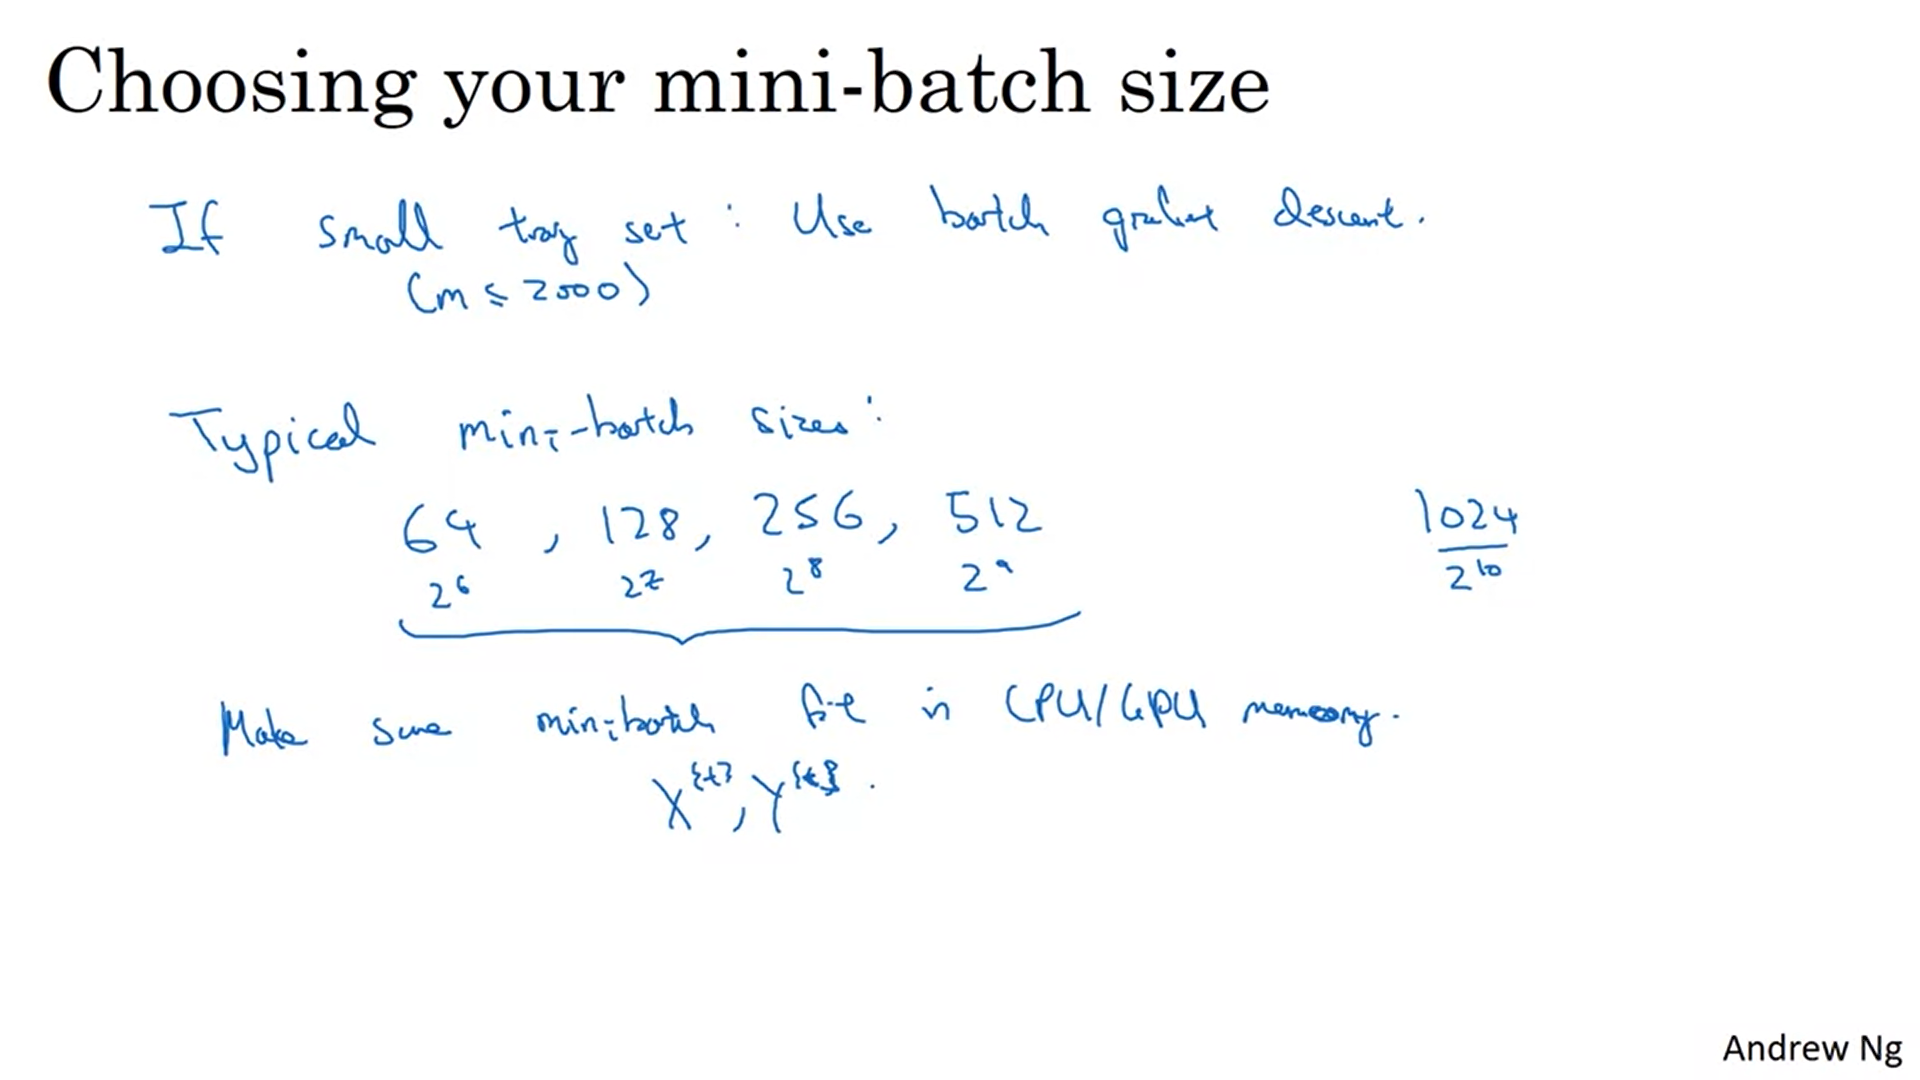 Choosing your mini-batch size
If small tray set : Use batch gradient descent.
(m ≤ 2000)
Typical mini-batch sizes:
64 , 128, 256, 512 1024
2⁶ 2⁷ 2⁸ 2⁹ 2¹⁰
Make sure minibatch fit in CPU/GPU memory.
X^{t}, Y^{t}.
Andrew Ng